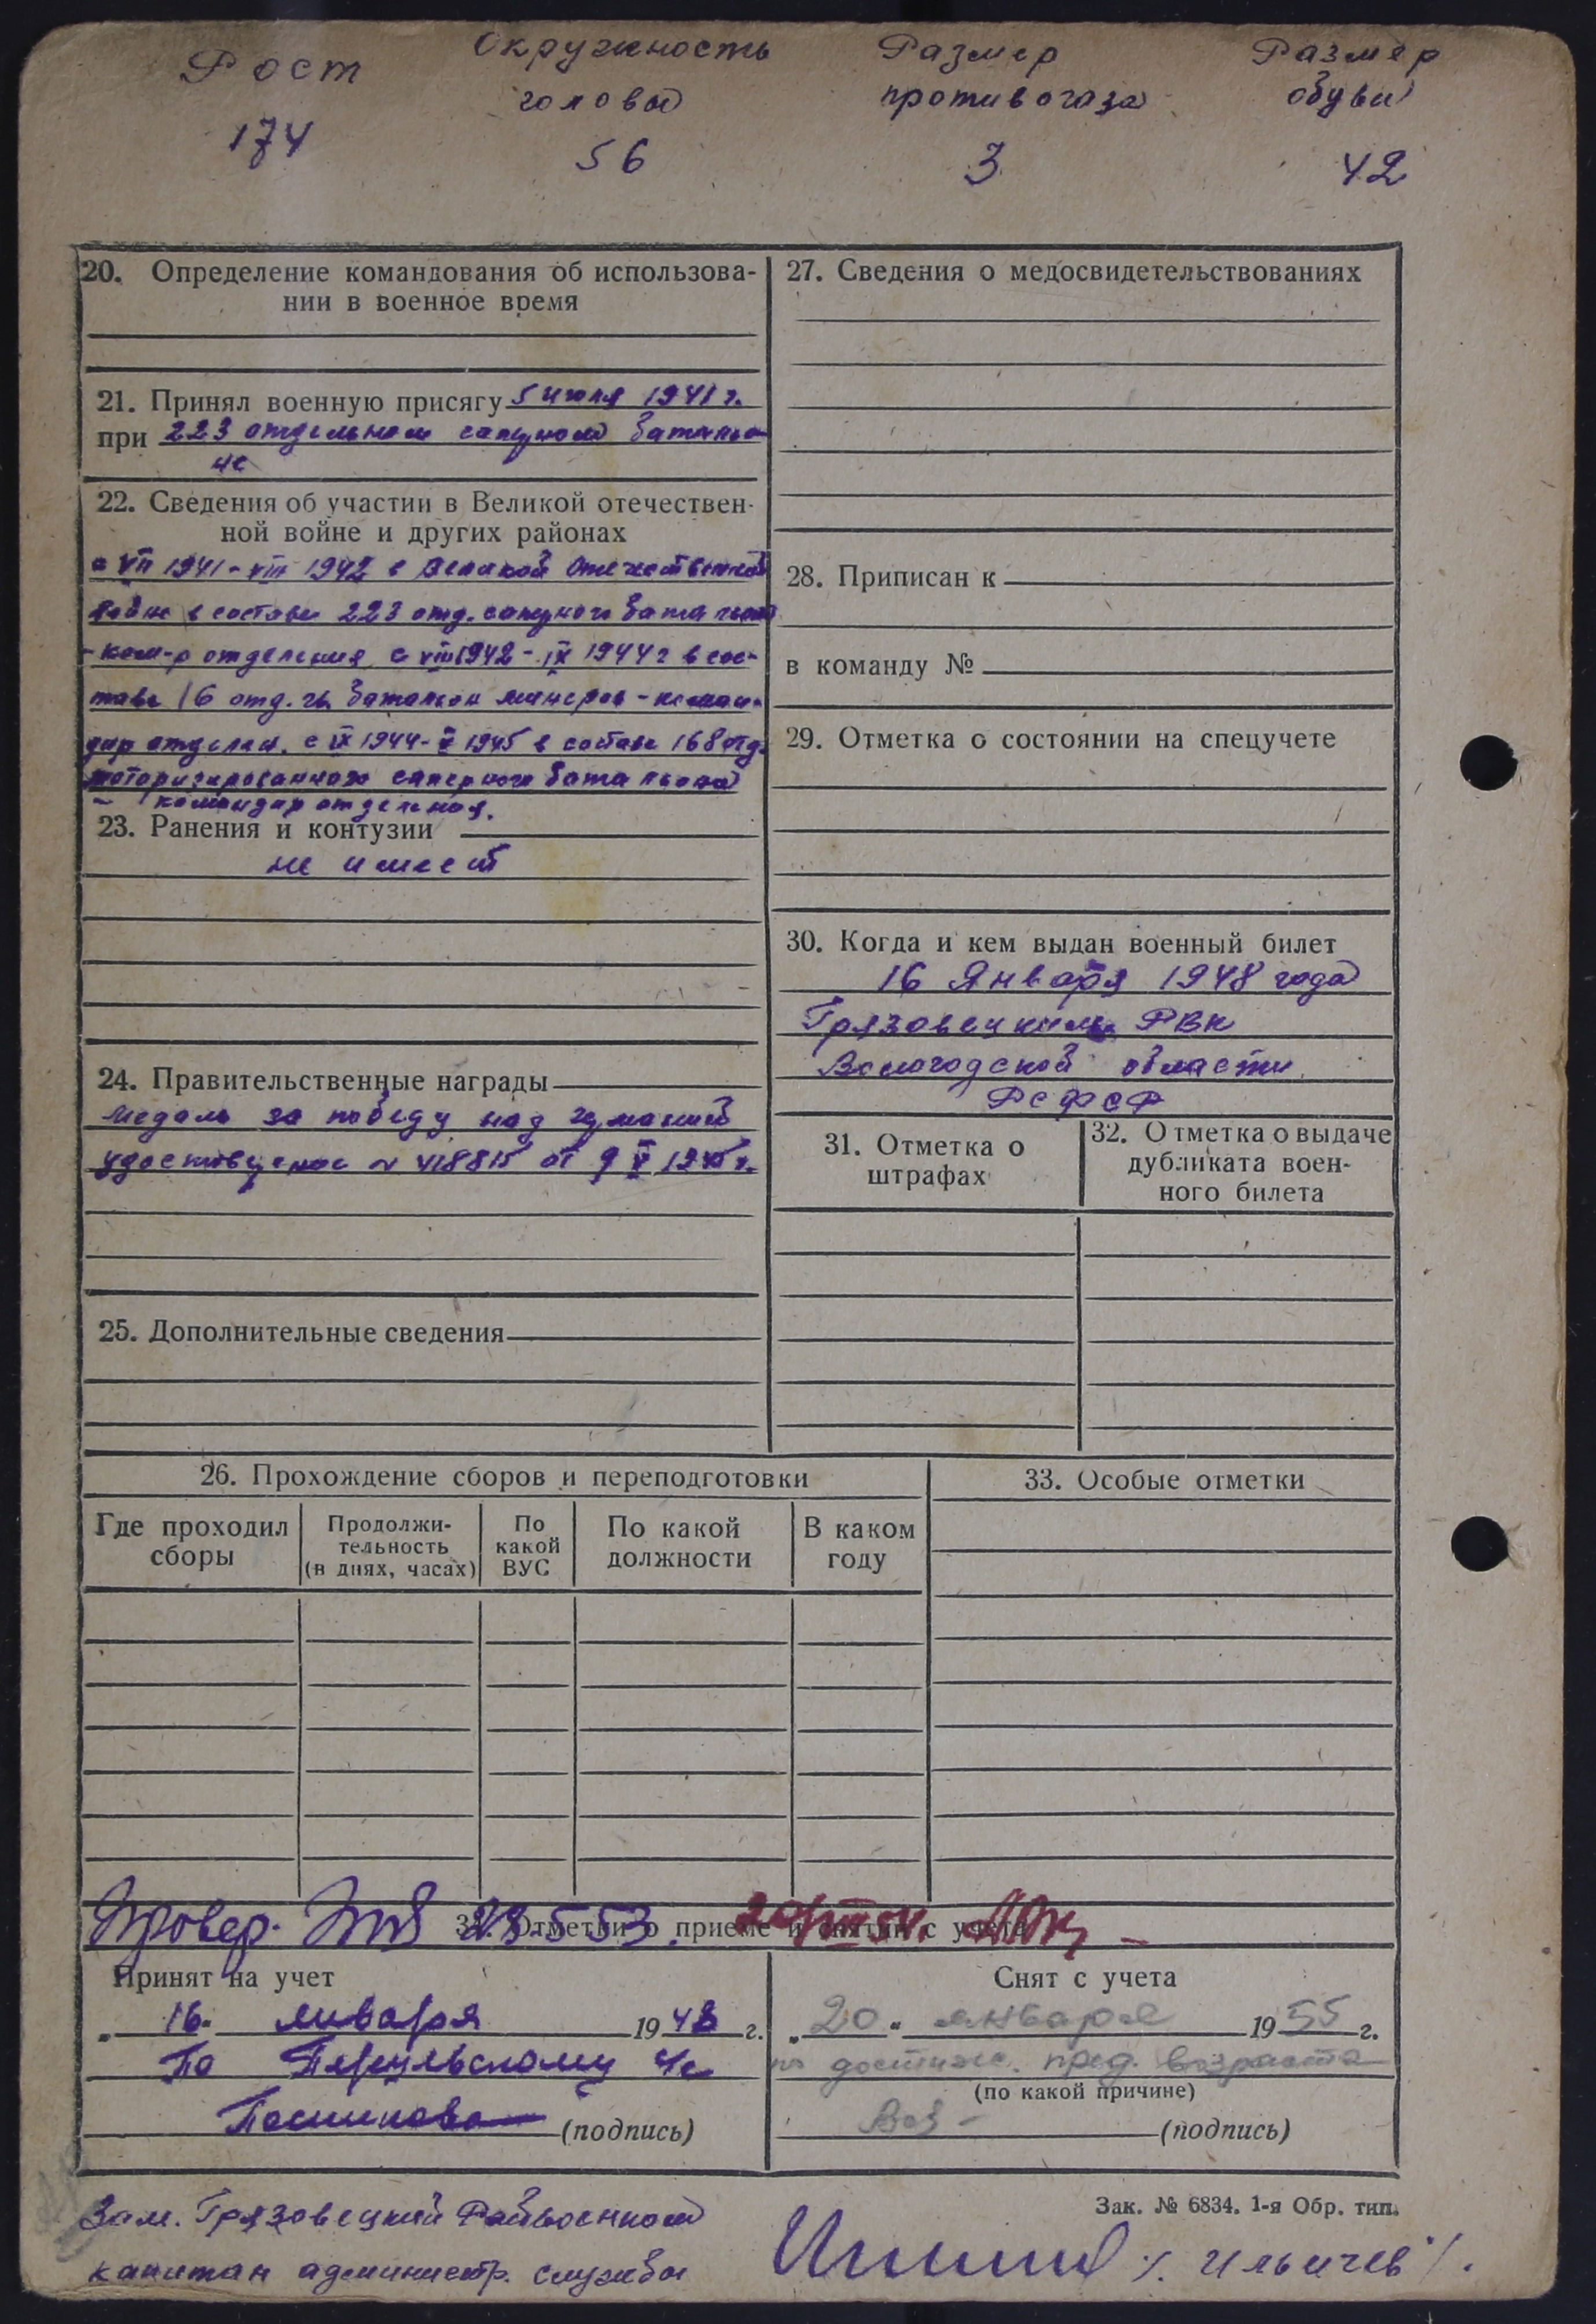 Рост Окружность Размер Размер
головы противогаза обуви
174 56 3 42
20. Определение командования об использова-
нии в военное время
21. Принял военную присягу 5 июля 1941 г.
при 223 отдельном саперном батальо-
не
22. Сведения об участии в Великой отечествен-
ной войне и других районах
с VII 1941 - VIII 1942 в Великой Отечественной
войне в составе 223 отд. саперного батальона
- ком-р отделения с VIII 1942 - IX 1944 г в сос-
таве 16 отд. гв. батальон минеров - коман-
дир отделен. с IX 1944 - V 1945 в составе 168 отд.
моторизированного саперного батальона
- командир отделения.
23. Ранения и контузии
не имеет
24. Правительственные награды
медаль за победу над германией
удостоверение N 418815 от 9 V 1945 г.
25. Дополнительные сведения
27. Сведения о медосвидетельствованиях
28. Приписан к
в команду №
29. Отметка о состоянии на спецучете
30. Когда и кем выдан военный билет
16 Января 1948 года
Грязовецким РВК
Вологодской области
РСФСР
31. Отметка о
штрафах
32. Отметка о выдаче
дубликата воен-
ного билета
26. Прохождение сборов и переподготовки
Где проходил
сборы
Продолжи-
тельность
(в днях, часах)
По
какой
ВУС
По какой
должности
В каком
году
33. Особые отметки
34. Отметки о приеме и снятии с учета
Провер. 28.5.53.
Принят на учет
„16“ января 1948 г.
По
(подпись)
Снят с учета
„20“ января 1955 г.
по достиж. пред. возраста
(по какой причине)
(подпись)
Зам. Грязовецкий Райвоенком
капитан администр. службы /. Ильичев /.
Зак. № 6834. 1-я Обр. тип.